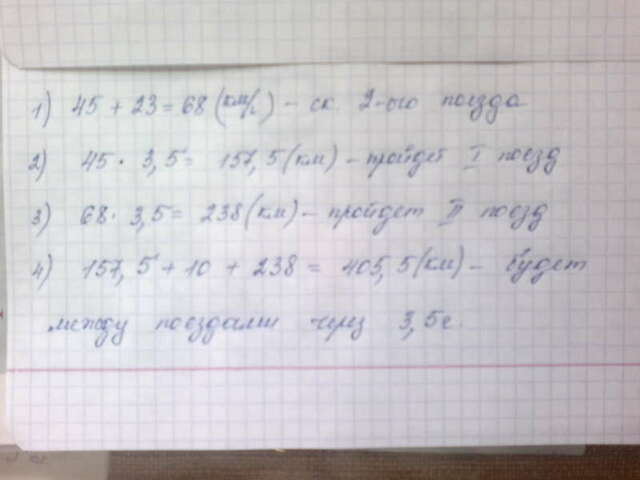 1) 45 + 23 = 68 (км/ч) - ск. 2-ого поезда
2) 45 · 3,5 = 157,5 (км) - пройдет I поезд
3) 68 · 3,5 = 238 (км) - пройдет II поезд
4) 157,5 + 10 + 238 = 405,5 (км) - будет
между поездами через 3,5 ч.